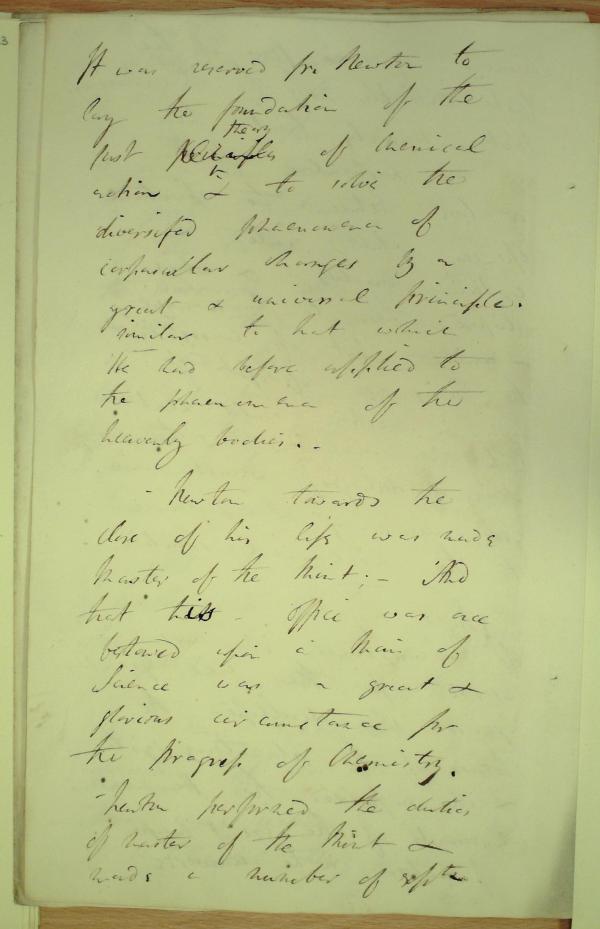 It was reserved for Newton to
lay the foundation of the
just theory of chemical
action & to solve the
diversified phaenomena of
corpuscular changes by a
great & universal principle.
similar to that which
He had before applied to
the phaenomena of the
heavenly bodies. -
- Newton towards the
close of his life was made
Master of the Mint; - And
that this - office was once
bestowed upon a Man of
Science was a great &
glorious circumstance for
the Progress of Chemistry.
- Newton performed the duties
of master of the Mint &
made a number of expts